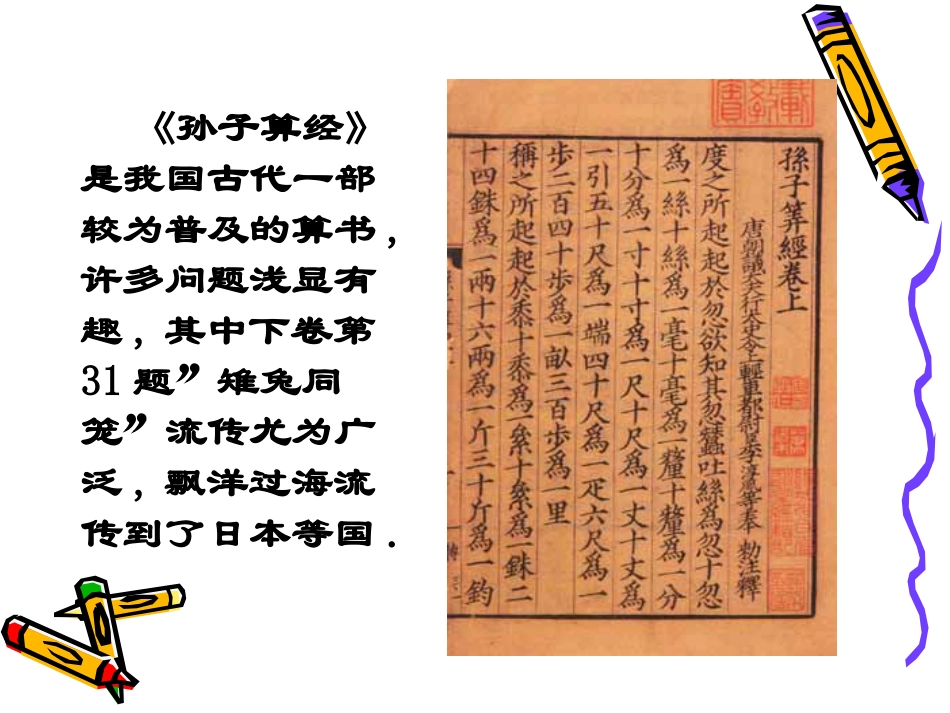 《孙子算经》
是我国古代一部
较为普及的算书,
许多问题浅显有
趣,其中下卷第
31题”雉兔同
笼”流传尤为广
泛,飘洋过海流
传到了日本等国.
孫子筭經卷上
唐朝議大夫行太史令上輕車都尉臣李淳風等奉 勅注釋
度之所起起於忽欲知其忽蠶吐絲為忽十忽
為一絲十絲為一毫十毫為一釐十釐為一分
十分為一寸十寸為一尺十尺為一丈十丈為
一引五十尺為一端四十尺為一疋六尺為一
步二百四十步為一畝三百步為一里
稱之所起起於黍十黍為一絫十絫為一銖二
十四銖為一兩十六兩為一斤三十斤為一鈞